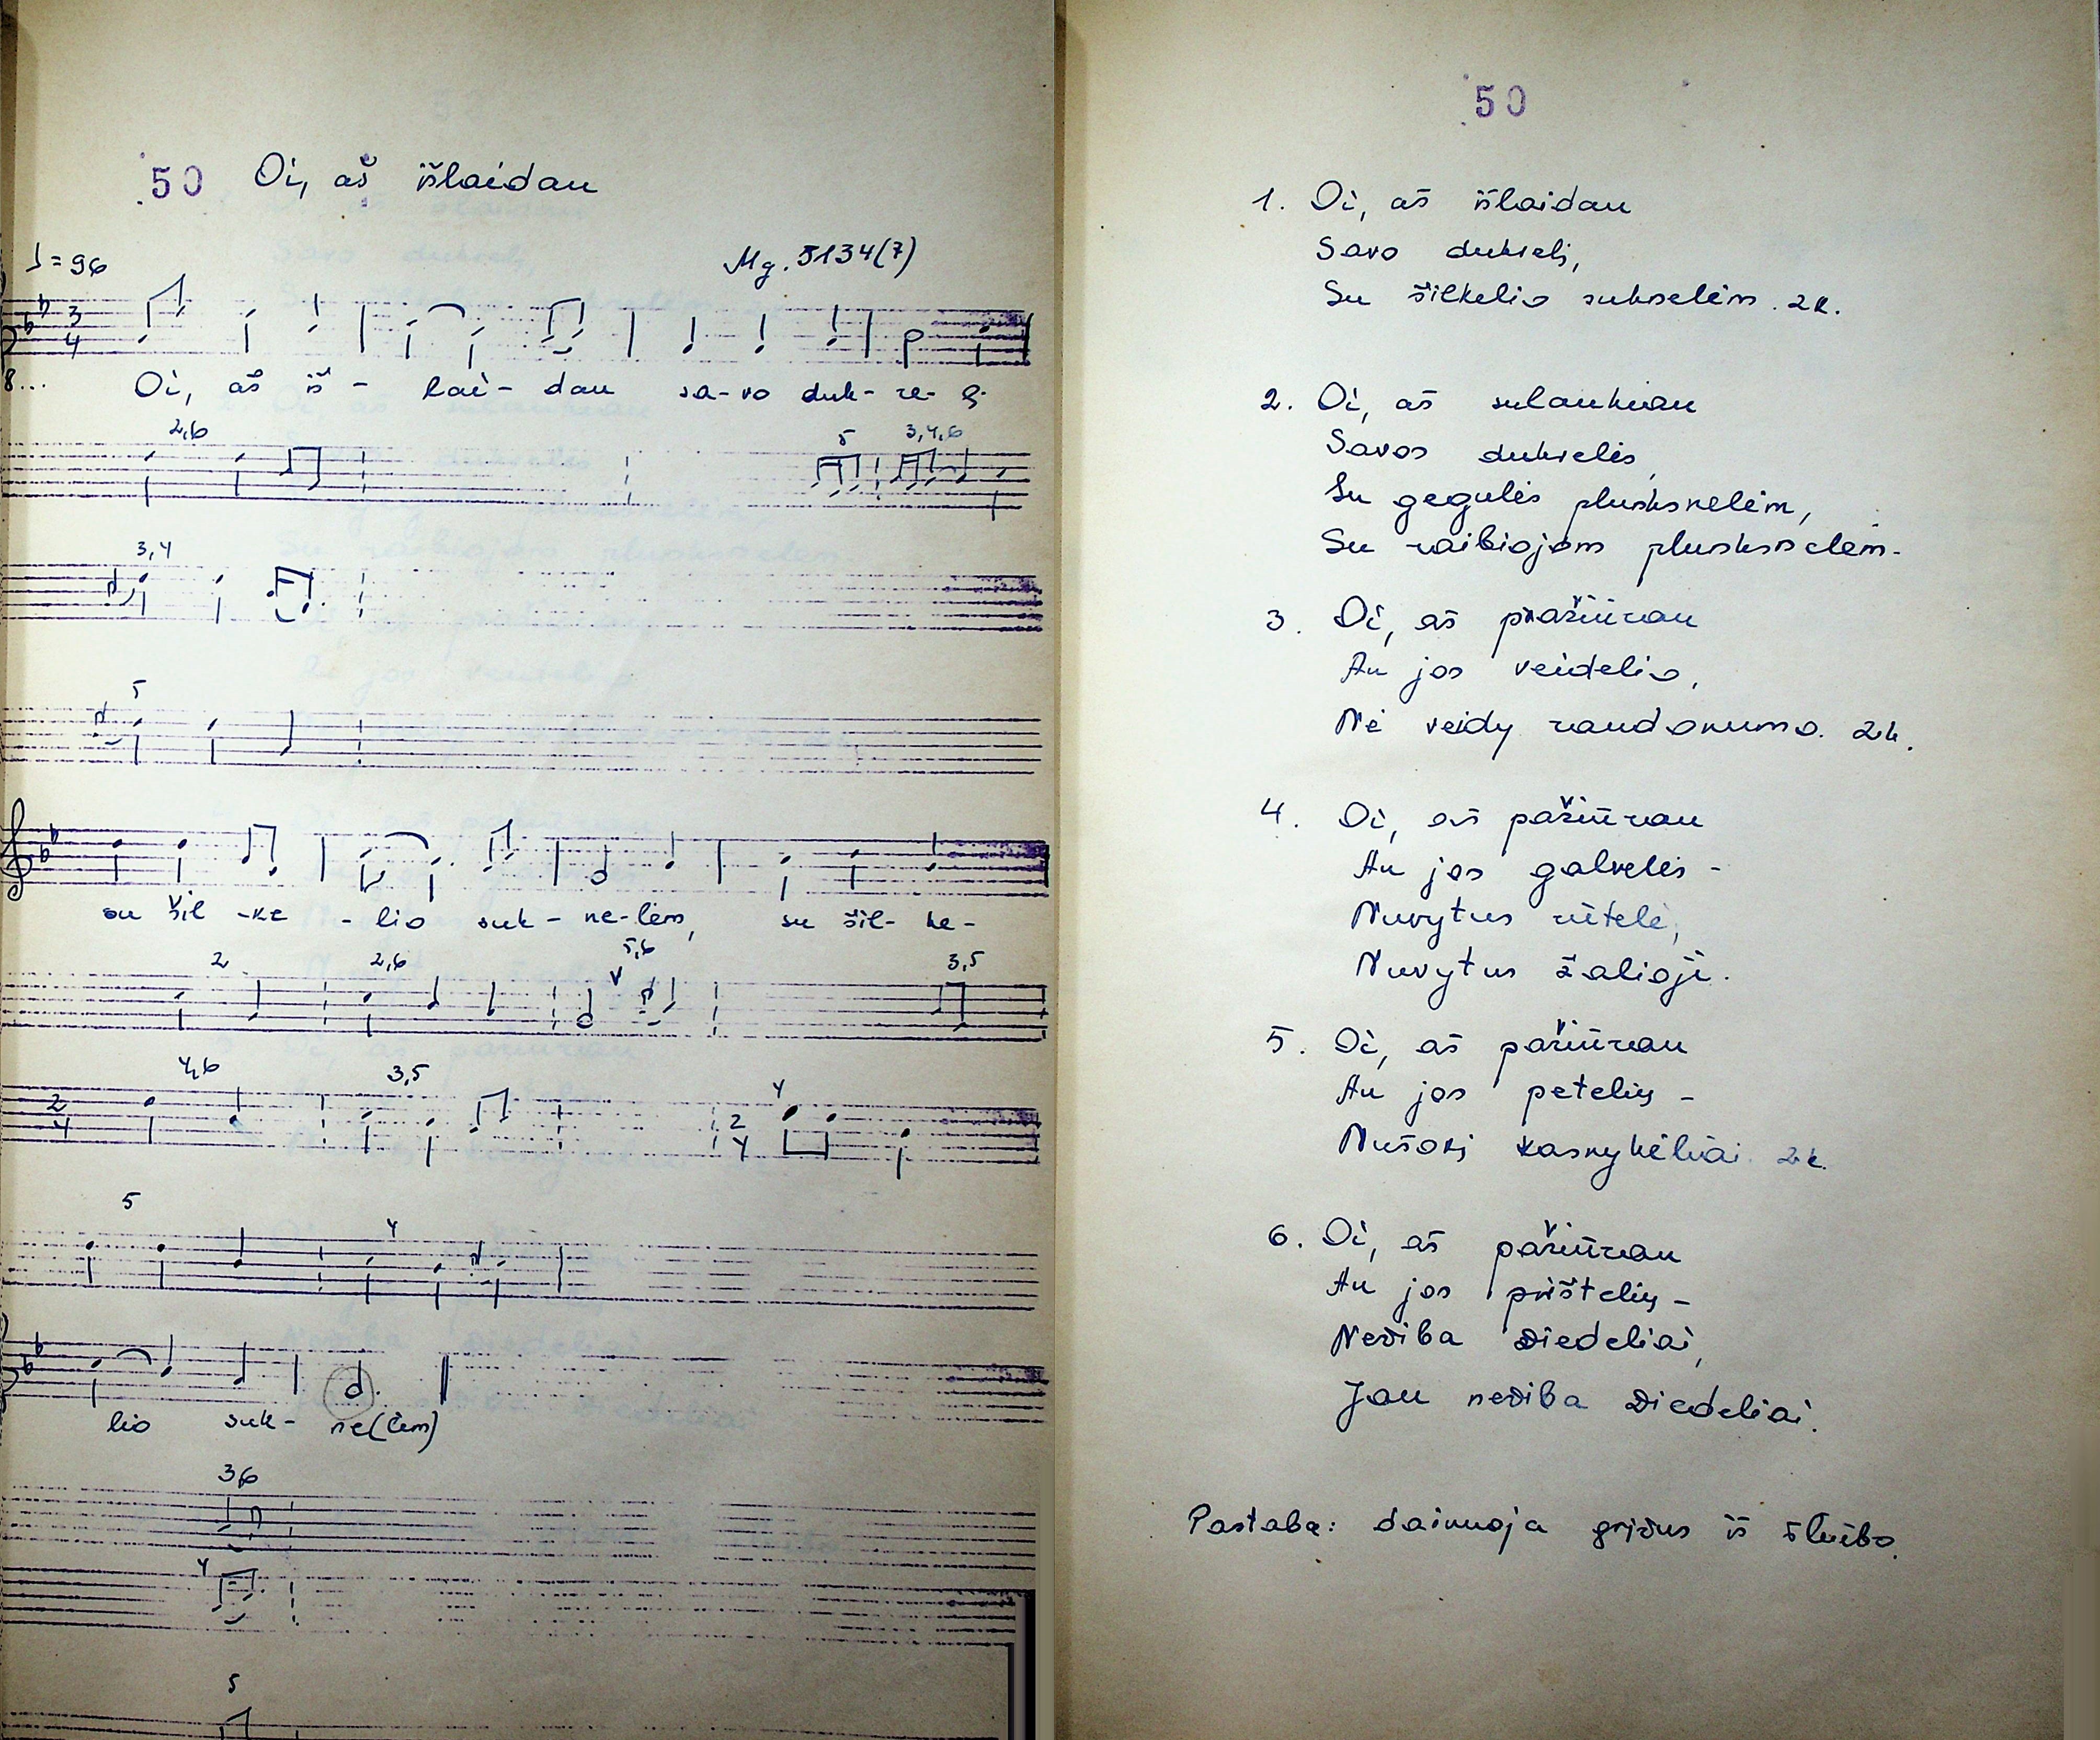 50 Oi, aš išlaidau
♩=96
Mg. 5134(7)
3
4
8...
Oi, aš iš - lai - dau sa-vo duk-re-lį
2,6 5 3,4,6
3,4
5
su šil -ke -lio suk-ne-lėm, su šil- ke-
2 2,6 5,6 3,5
4,6 3,5 4
2
4
2
4
5 4
lio suk- ne(lėm)
3,6
4
5
50
1. Oi, aš išlaidau
Savo dukrelį,
Su šilkelio suknelėm. 2k.
2. Oi, aš sulaukiau
Savos dukrelės,
Su gegulės plunksnelėm,
Su raibiojom plunksnelėm.
3. Oi, aš pažiūrau
An jos veidelio,
Nė veidų raudonumo. 2k.
4. Oi, aš pažiūrau
An jos galvelės -
Nuvytus rūtelė,
Nuvytus žalioji.
5. Oi, aš pažiūrau
An jos petelių -
Nušokį kasnykėliai 2k.
6. Oi, aš pažiūrau
An jos pirštelių -
Nežiba žiedeliai,
Jau nežiba žiedeliai.
Pastaba: dainuoja grįžus iš šliūbo.